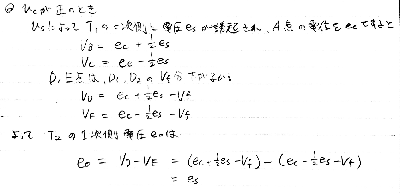 ② Ucが正のとき
Usによって T₁の二次側に電圧esが誘起され、A点の電位をecですると
V_B = ec + ½es
V_C = ec - ½es
D,E点は、D₁, D₂の Vf 分下がるから
V_D = ec + ½es - Vf
V_E = ec - ½es - Vf
よって T₂の1次側電圧eoは
eo = V_D - V_E = (ec + ½es - Vf) - (ec - ½es - Vf)
= es